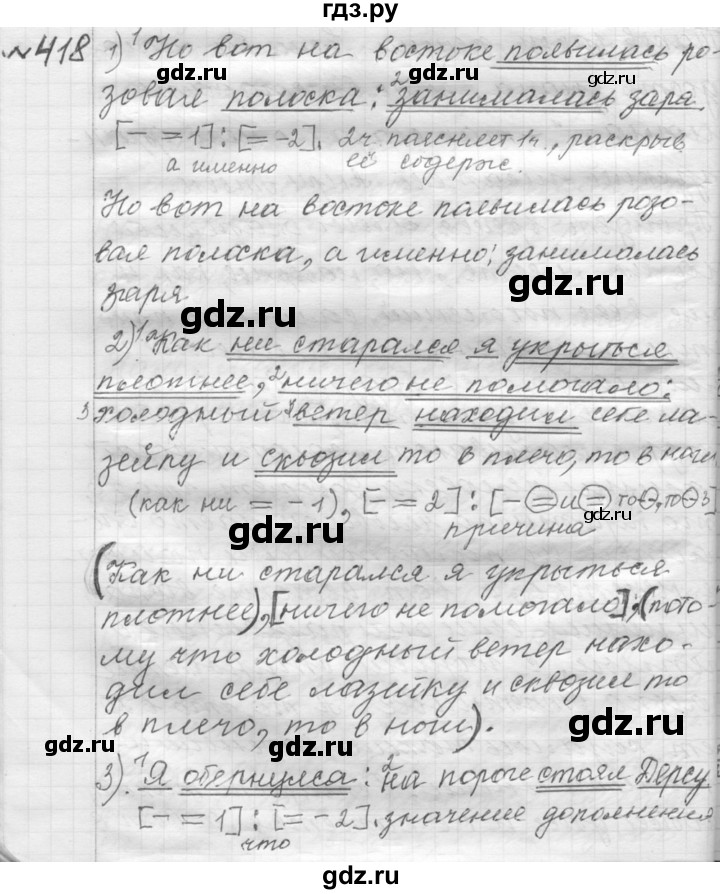 гдз.ру
№418 1) ¹Но вот на востоке появилась ро-
зовая полоска: ²занималась заря.
[- = 1] : [= - 2]. 2ч. поясняет 1ч., раскрыв.
а именно её содерж.
Но вот на востоке появилась розо-
вая полоска, а именно: занималась
заря
2) ¹Как ни старался я укрыться
плотнее, ²ничего не помогало:
³холодный ветер находил себе ла-
зейку и сквозил то в плечо, то в ноги
(как ни = - 1), [- = 2] : [- = и = то, то 3]
причина
(Как ни старался я укрыться
плотнее), [ничего не помогало], (пото-
му что холодный ветер нахо-
дил себе лазейку и сквозил то
в плечо, то в ноги).
3). ¹Я обернулся: ²на пороге стоял Дерсу
[- = 1] : [= - 2]. значение дополнения
что
gdz.ru
gdz.ru
gdz.ru
gdz.ru
gdz.ru
gdz.ru
gdz.ru
gdz.ru
gdz.ru
gdz.ru
gdz.ru
gdz.ru
gdz.ru
gdz.ru